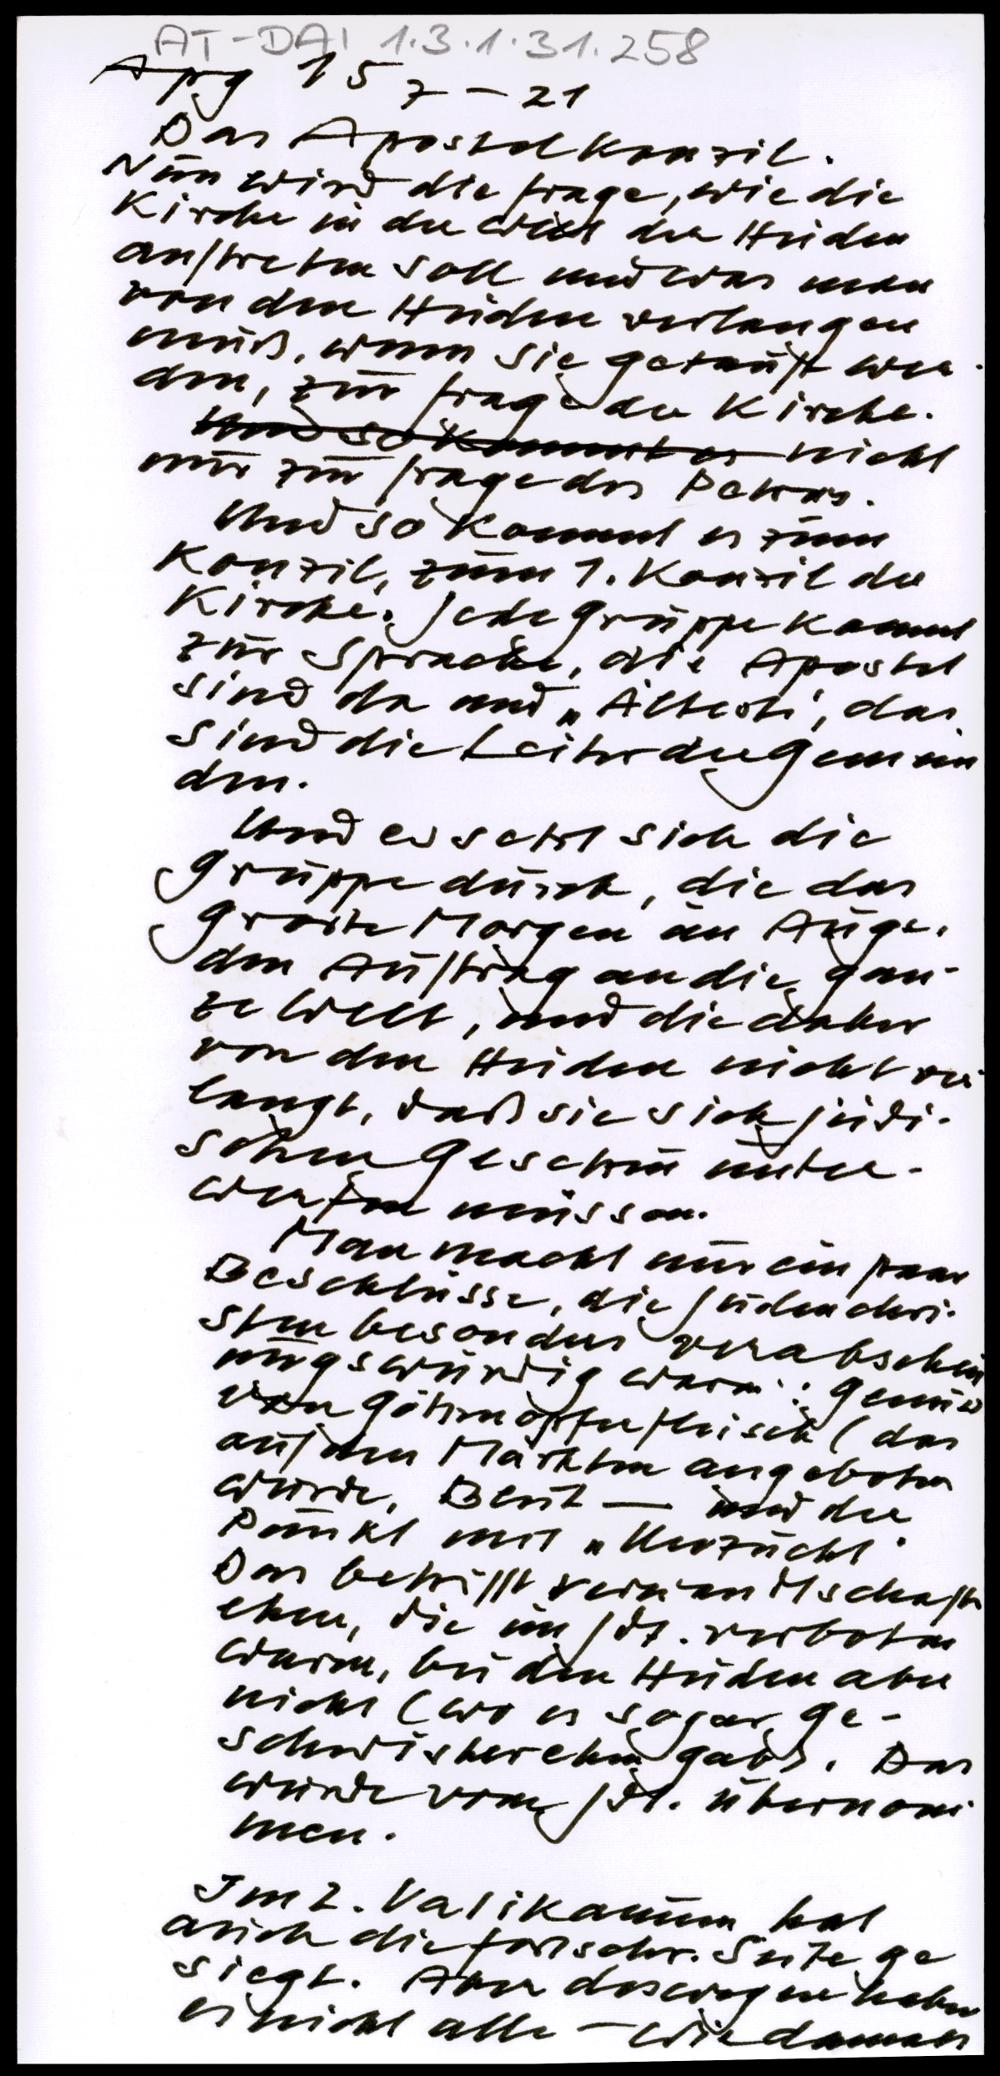 AT-DAI 1.3.1.31.258
Apg 15 7-21
Das Apostelkonzil.
Nun wird die Frage, wie die
Kirche in der Welt der Heiden
auftreten soll und was man
von den Heiden verlangen
muß, wenn sie getauft wer-
den, zur Frage der Kirche.
Und so kommt es nicht
nur zur Frage des Petrus.
Und so kommt es zum
Konzil, zum 1. Konzil der
Kirche. Jede Gruppe kommt
zur Sprache, die Apostel
sind da und „Älteste", das
sind die Leiter der Gemein
den.
Und es setzt sich die
Gruppe durch, die das
große Morgen im Auge,
den Auftrag an die gan-
ze Welt, und die daher
von den Heiden nicht ver
langt, daß sie sich jüdi-
schen Gesetzen unter-
werfen müssen.
Man macht nur ein paar
Beschlüsse, die Judenchri-
sten besonders verabscheu
ungswürdig waren: Genuß
von Götzenopferfleisch (das
auf den Märkten angeboten
wurde, Blut — und der
Punkt mit „Unzucht"
Das betrifft Verwandtschafts
ehen, die im Jdt. verboten
waren, bei den Heiden aber
nicht (wo es sogar Ge-
schwisterehen gab). Das
wurde vom Jdt. übernom
men.
Im 2. Vatikanum hat
auch die fortschr. Seite ge
siegt. Aber deswegen haben
es nicht alle – wie damals